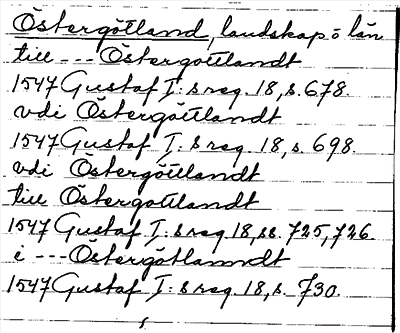 Östergötland, landskap o län
till --- Östergottlandt
1547 Gustaf I: s reg. 18, s. 678.
vdi Östergöttlandt
1547 Gustaf I: s reg. 18, s. 698.
vdi Östergöttlandt
till Östergottlandt
1547 Gustaf I: s reg. 18, ss. 725, 726.
i --- Östergötlanndt
1547 Gustaf I: s reg. 18, s. 730.